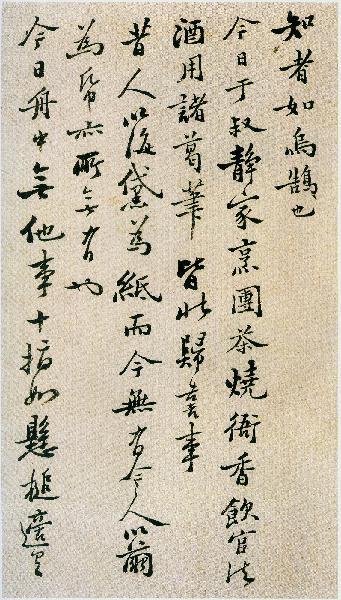 知者如烏鵲也
今日于叔靜家烹團茶燒衙香飲官法
酒用諸葛筆皆此歸喜事
昔人以海苔為紙而今無有今人以繭
為紙亦所無有也
今日舟中無他事十指如懸槌適有